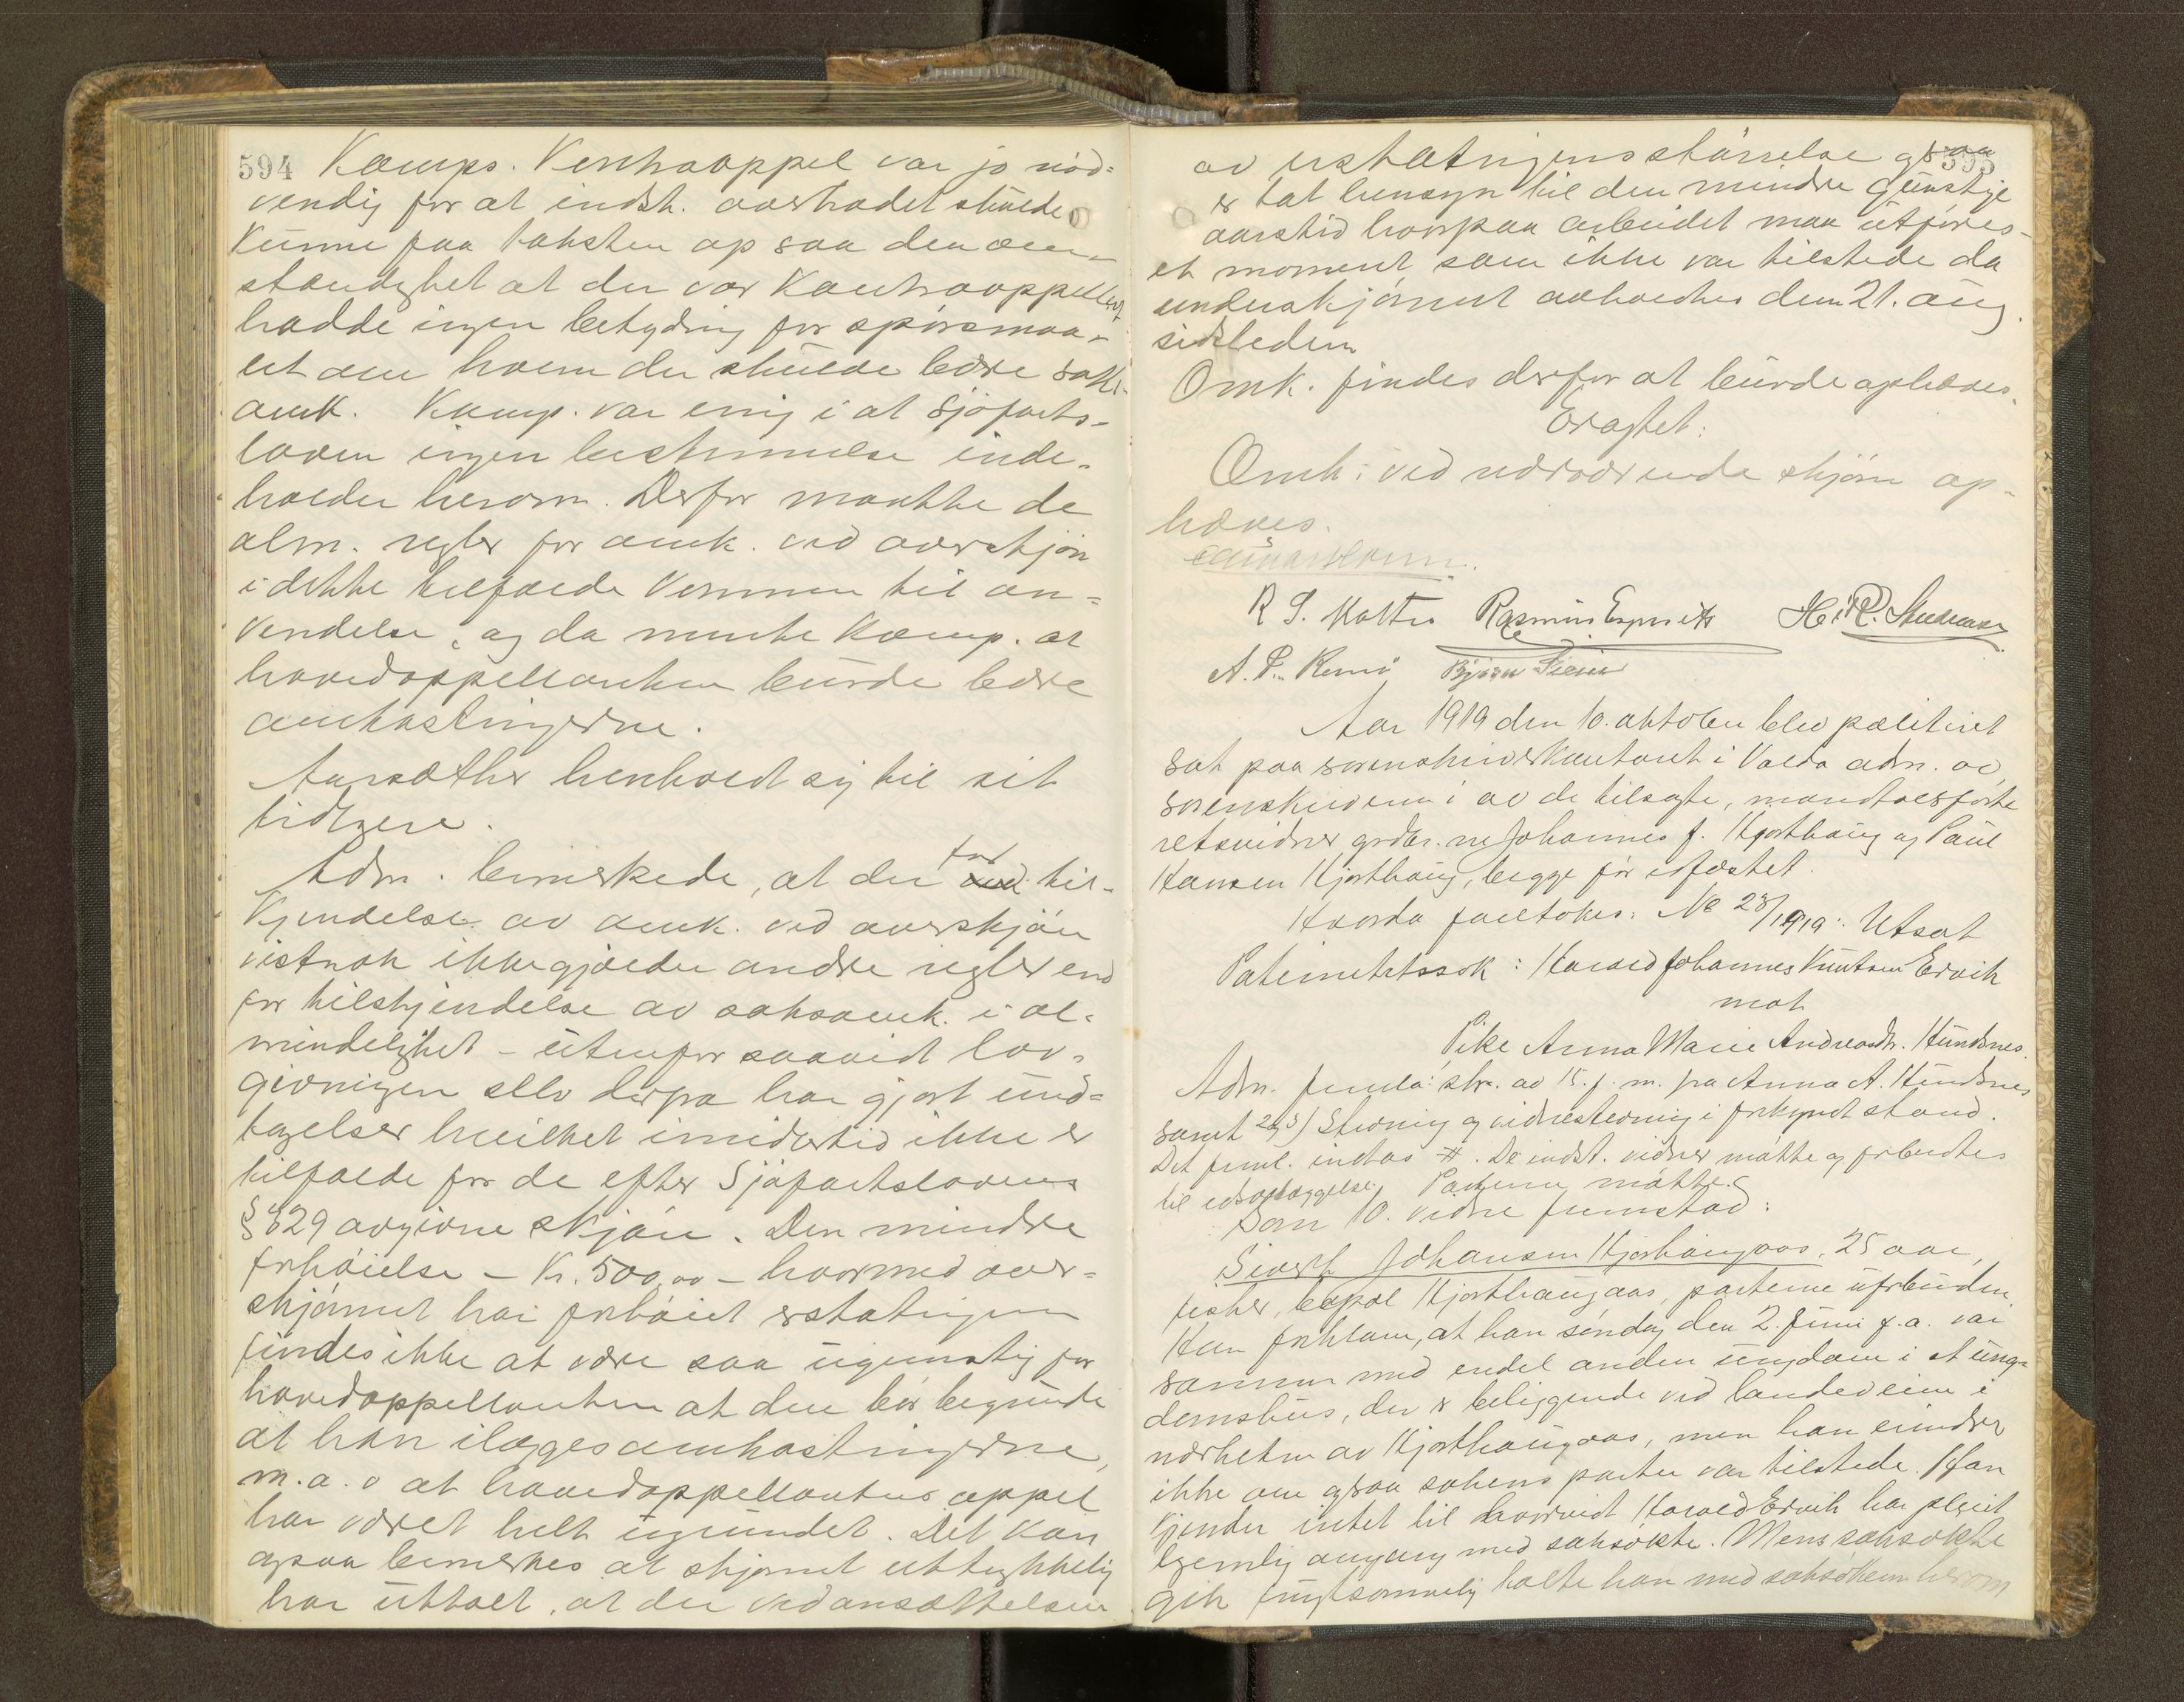 594 Kæmps. Kontraappel var jo nød=
vendig for at indst. overhodet skulde
kunne faa taksten op saa den om-
stændighet at der var Kontraappellert
hadde ingen betydning for spørsmaa-
let om hvem der skulde bære saks-
omk. Kæmp. var enig i at Sjøfarts-
loven ingen bestemmelse inde-
holder herom. Derfor maatte de
alm. regler for omk. ved overskjøn
i dette tilfælde komme til an=
vendelse, og da mente Kæmp. at
hovedappellanten burde bære
omkostningerne.
Aarsæther henholdt sig til sit
tidligere.
Adm. bemerkede, at der for til-
kjendelse av omk. ved overskjøn
vistnok ikke gjælder andre regler end
for tilkjendelse av saksomk. i al-
mindelighet - utenfor saavidt lov-
givningen selv derfra har gjort und=
tagelser hvilket imidlertid ikke er
tilfælde for de efter Sjøfartslovens
§ 329 avgivne skjøn. Den mindre
forhøielse - Kr. 500,00 - hvormed over=
skjønnet har forhøiet erstatningen
findes ikke at være saa ugunstig for
hovedappellanten at den bør begrunde
at han ilægges omkostningerne,
m.a.o at hovedappellantens appel
har været helt ugrundet. Det kan
ogsaa bemerkes at skjønnet uttrykkelig
har uttalt, at der ved ansættelsen
595
av erstatningens størrelse ogsaa
er tat hensyn til den mindre gunstige
aarstid hvorpaa arbeidet maa utføres -
et moment, som ikke var tilstede da
underskjønnet avholdtes den 21. aug.
sidstleden
Omk. findes derfor at burde ophæves.
Eragtet:
Omk. ved nærværende skjøn op-
hæves.
R S. Rasmus H. R.
A. P. Remø Bjørn
Aar 1919 den 10. oktober blev politiret
sat paa sorenskriverkontoret i Volda adm. av
sorenskriveren i av de tilsagte, mandtalsførte
retsvidner grdbr.ne Johannes J. Hjorthaug og Paul
Hansen Hjorthaug, begge før edfæstet.
Hvorda foretokes: No 23/1919: Utsat
Paternitetssak: Harald Johannes Knutsen Ervik
mot
Pike Anna Marie Andreasdtr. Hundsnes.
Adm. fremla: skr. av 15. f. m. fra Anna A. Hundsnes
samt 2 og 3) Stevning og vidnestevning i forkyndt stand.
Det freml. indtas #. De indst. vidner møtte og forberedtes
til edsavlæggelse. Parterne møtte.
Som 10. vidne fremstod:
Sivert Johansen Hjorthaugaas, 25 aar,
fisker, bopæl Hjorthaugaas, parterne uforbunden.
Han forklarer, at han søndag den 2. juni f.a. var
sammen med endel anden ungdom i et ung-
domshus, der er beliggende ved landeveien i
nærheten av Hjorthaugaas, men han erindrer
ikke om ogsaa sakens parter var tilstede. Han
kjender intet til hvorvidt Harald Ervik har pleiet
legemlig omgang med saksøkte. Mens saksøkte
gik frugtsommelig talte han med saksøkeren herom